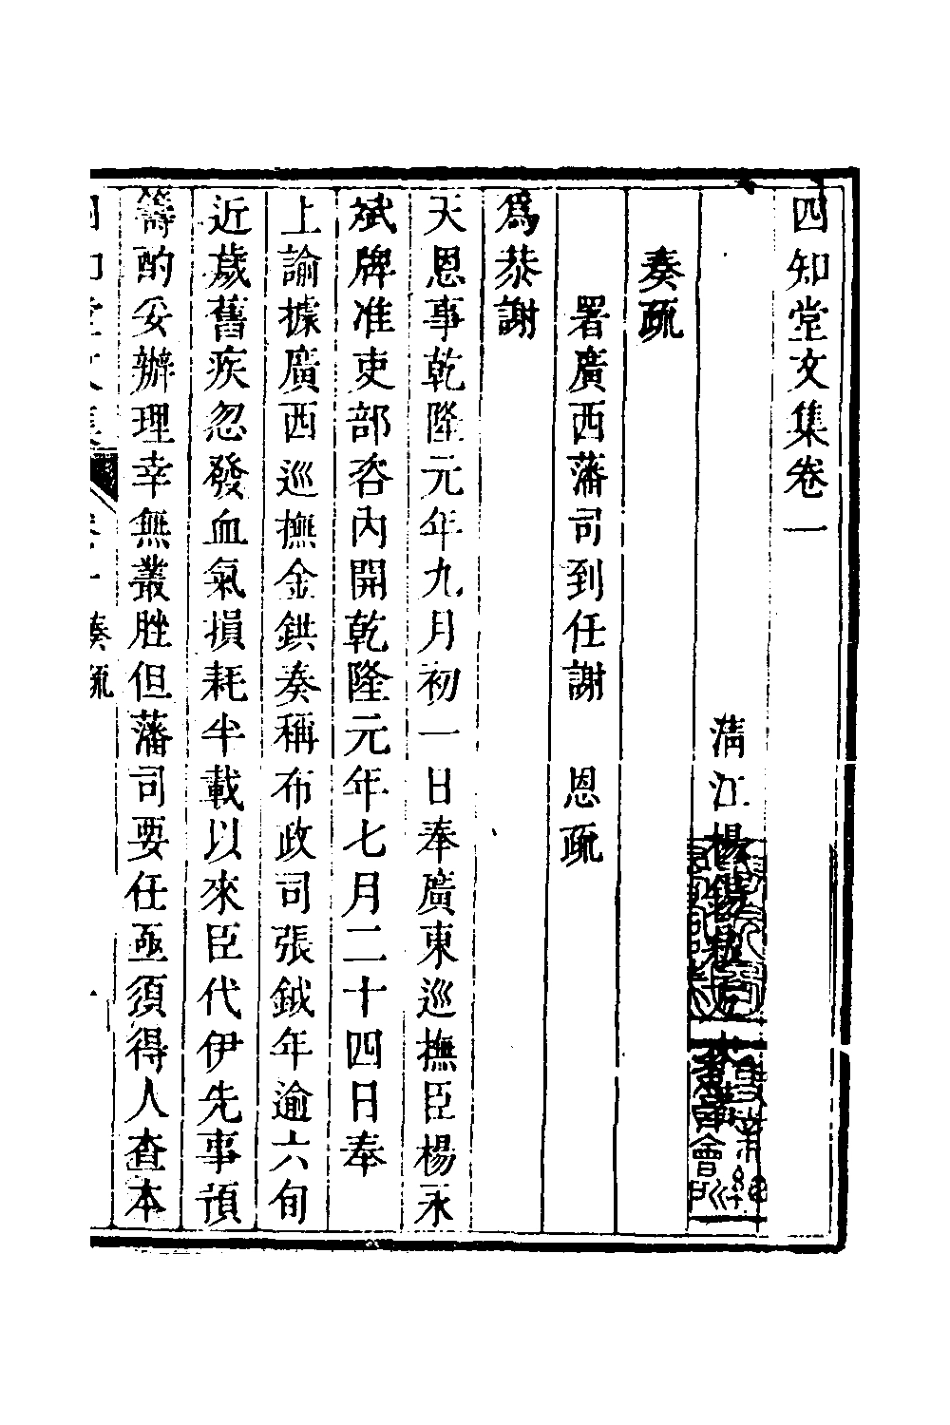 四知堂文集卷一
清江楊錫紱
奏疏
署廣西藩司到任謝 恩疏
爲恭謝
天恩事乾隆元年九月初一日奉廣東巡撫臣楊永
斌牌准吏部咨內開乾隆元年七月二十四日奉
上諭據廣西巡撫金鉷奏稱布政司張鉞年逾六旬
近歲舊疾忽發血氣損耗半載以來臣代伊先事預
籌酌妥辦理幸無叢脞但藩司要任亟須得人查本
四知堂文集 卷一 奏疏 一